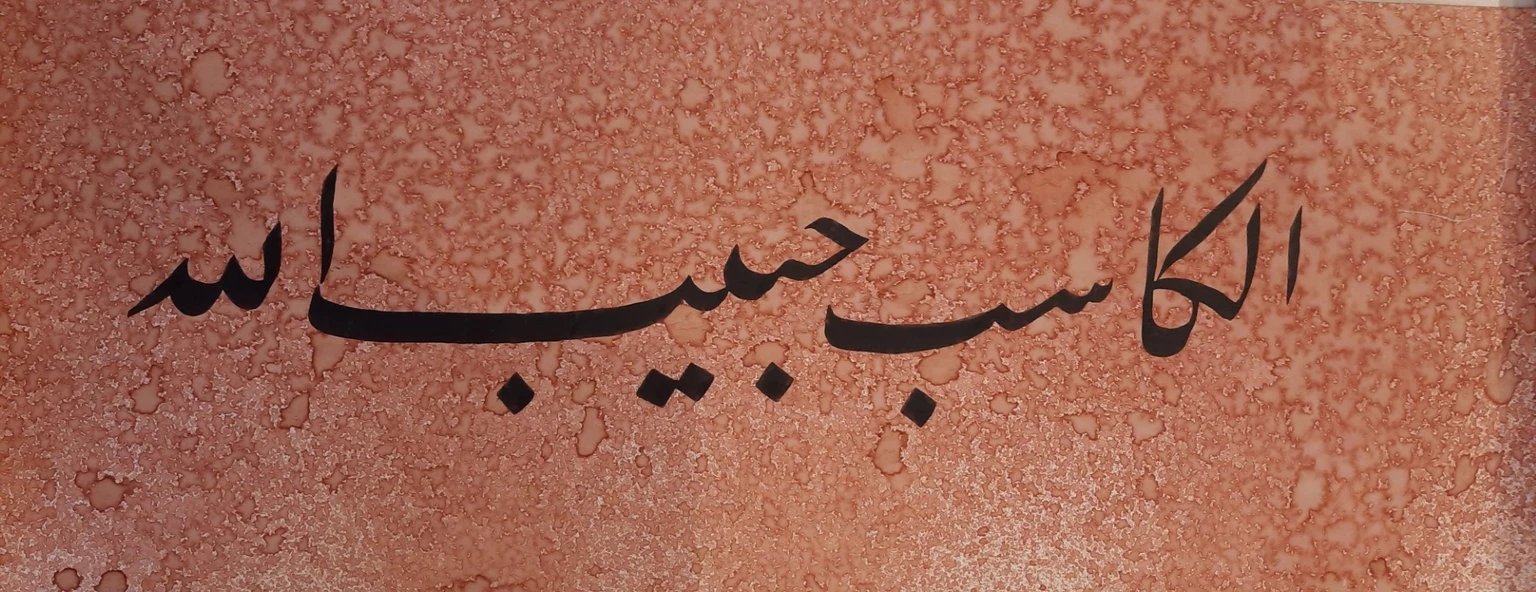 الكاسب حبيب الله